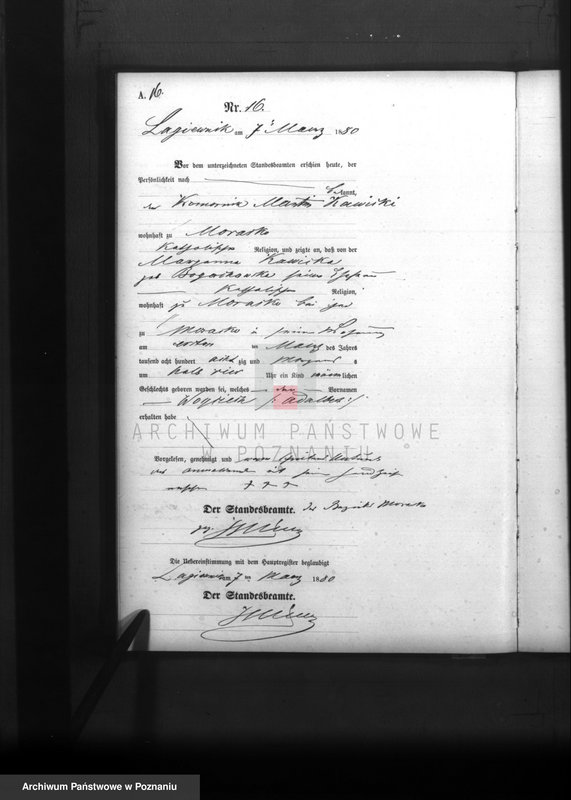 A. 16.
Nr. 16.
Lagiewnik am 7t März 1880
Vor dem unterzeichneten Standesbeamten erschien heute, der
Persönlichkeit nach
be kannt,
der Komornik Martin Kawiski
wohnhaft zu Morasko
Katholischer Religion, und zeigte an, daß von der
Maryanna Kawiska
geb seiner Ehefrau
Katholischer Religion,
wohnhaft zu Morasko bei ihm
zu Morasko in seiner Wohnung
am ersten ten März des Jahres
tausend acht hundert acht zig und Morgens s
um halb vier Uhr ein Kind männlichen
Geschlechts geboren worden sei, welches den Vornamen
Woyciech /: Adalbert :/
erhalten habe
Vorgelesen, genehmigt und wegen
des Anwesende ist sein Handzeichen
+ + +
Der Standesbeamte. des Bezirks Morasko
gez.
Die Uebereinstimmung mit dem Hauptregister beglaubigt
Lagiewnik am 7 ten März 1880
Der Standesbeamte.
ARCHIWUM PAŃSTWOWE
W POZNANIU
Archiwum Państwowe w Poznaniu